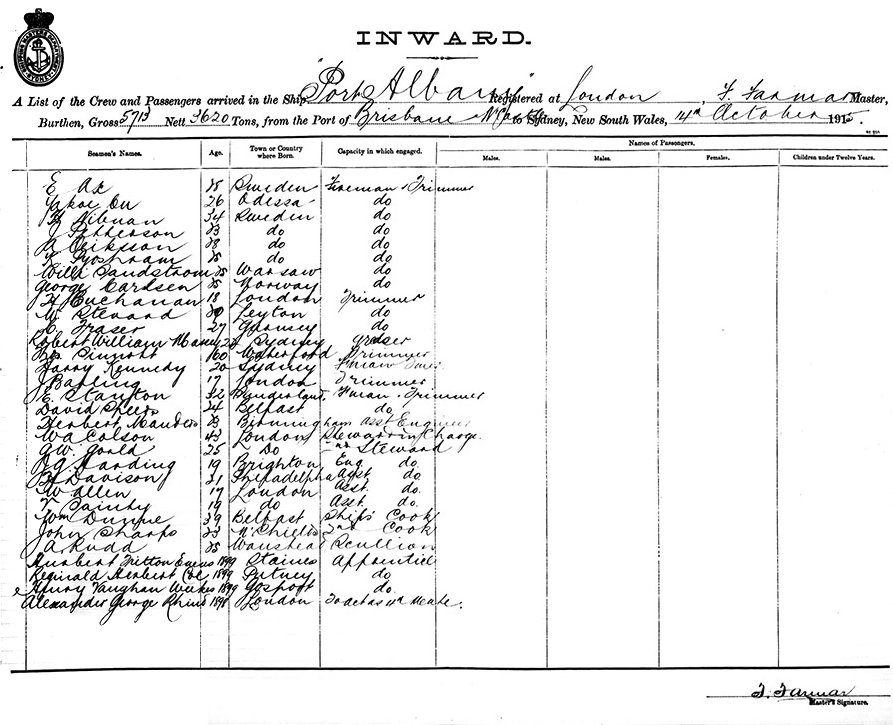 INWARD.
A List of the Crew and Passengers arrived in the Ship "Port Albany" Registered at London, F. Farmar Master,
Burthen, Gross 5713 Nett 3620 Tons, from the Port of Brisbane to Sydney, New South Wales, 14th October 1915.
Seamen's Names. Age. Town or Country where Born. Capacity in which engaged. Names of Passengers.
Males. Males. Females. Children under Twelve Years.
E Ax Sweden Fireman & Trimmer
26 Odessa do
34 Sweden do
J Patterson do do
A Eriksson do do
do do
Willi Sandstrom Warsaw do
George Carlsen Norway do
H Buchanan 18 London Trimmer
W. Steward Leyton do
C. Fraser 27 Guernsey do
Robert William Sydney Greaser
Sinnott Waterford Trimmer
Harry Kennedy 20 Sydney
J Bayling 17 London Trimmer
E. Stanton 32 Sunderland F'man & Trimmer
David Speers 24 Belfast do
Herbert Manders Birmingham Asst Engineer
W A Colson 43 London Steward in Charge.
G W. Goold 25 Do 2nd Steward
Harding 19 Brighton Eng. do.
H Davison 21 Philadelphia Asst. do
W Allen 17 London Asst. do.
19 do Asst. do.
Wm Dunne 39 Belfast Ship's Cook
John Sharp 23 N Shields 2nd Cook
J A Rudd Wanstead Scullion
Herbert Fritton Evens 1899 Staines Apprentice
Reginald Herbert Coe 1899 Putney do
Henry Vaughan Weekes 1899 Gosport do.
Alexander George Rhind 1898 London To act as 4th Mate.
F. Farmar
Master's Signature.